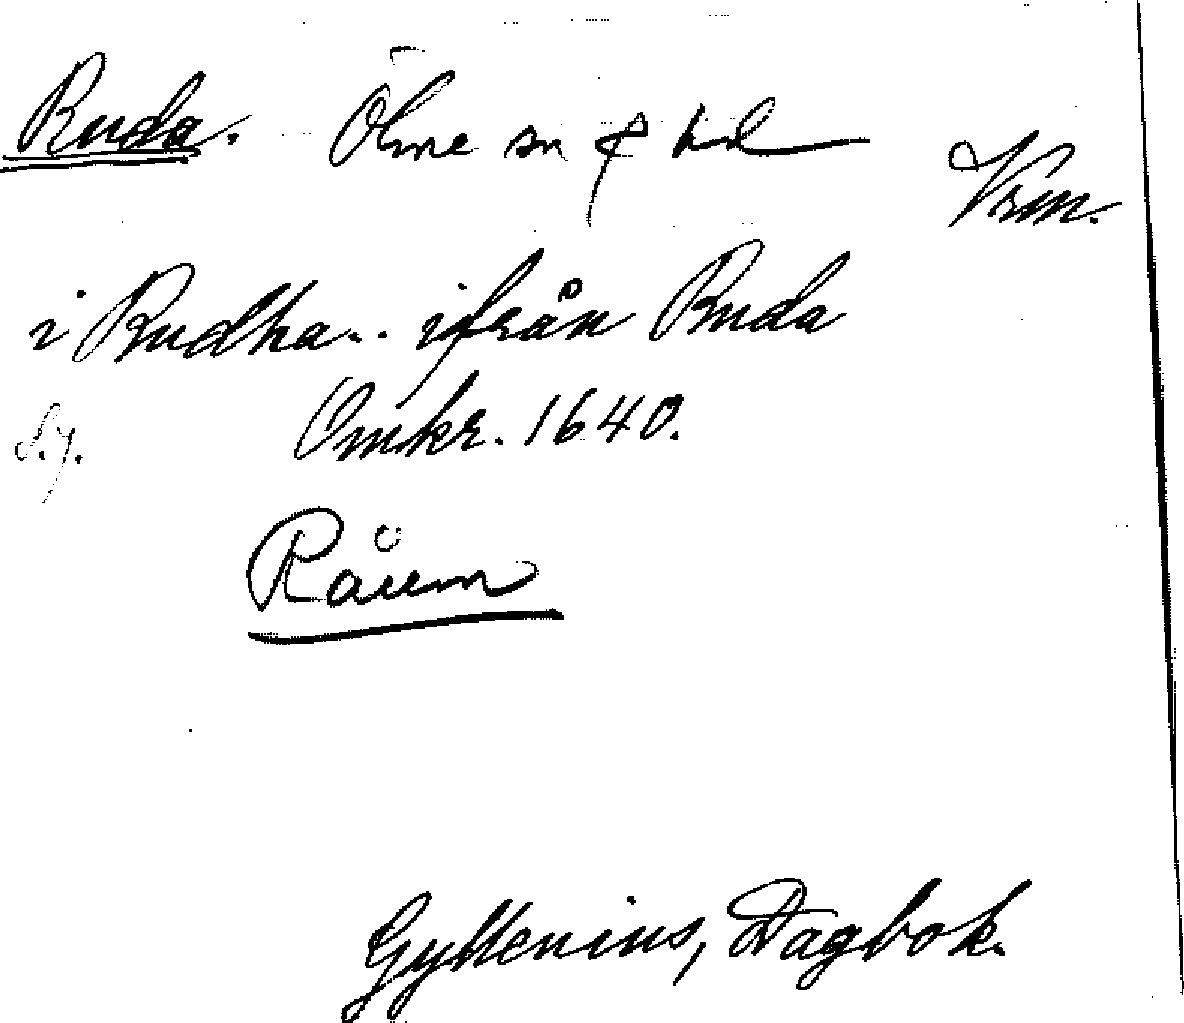 Ruda. Ölme sn & hd
Vrm.
i Rudha.. ifrån Ruda
S.j. Omkr. 1640.
Råum
Gyllenius, Dagbok.